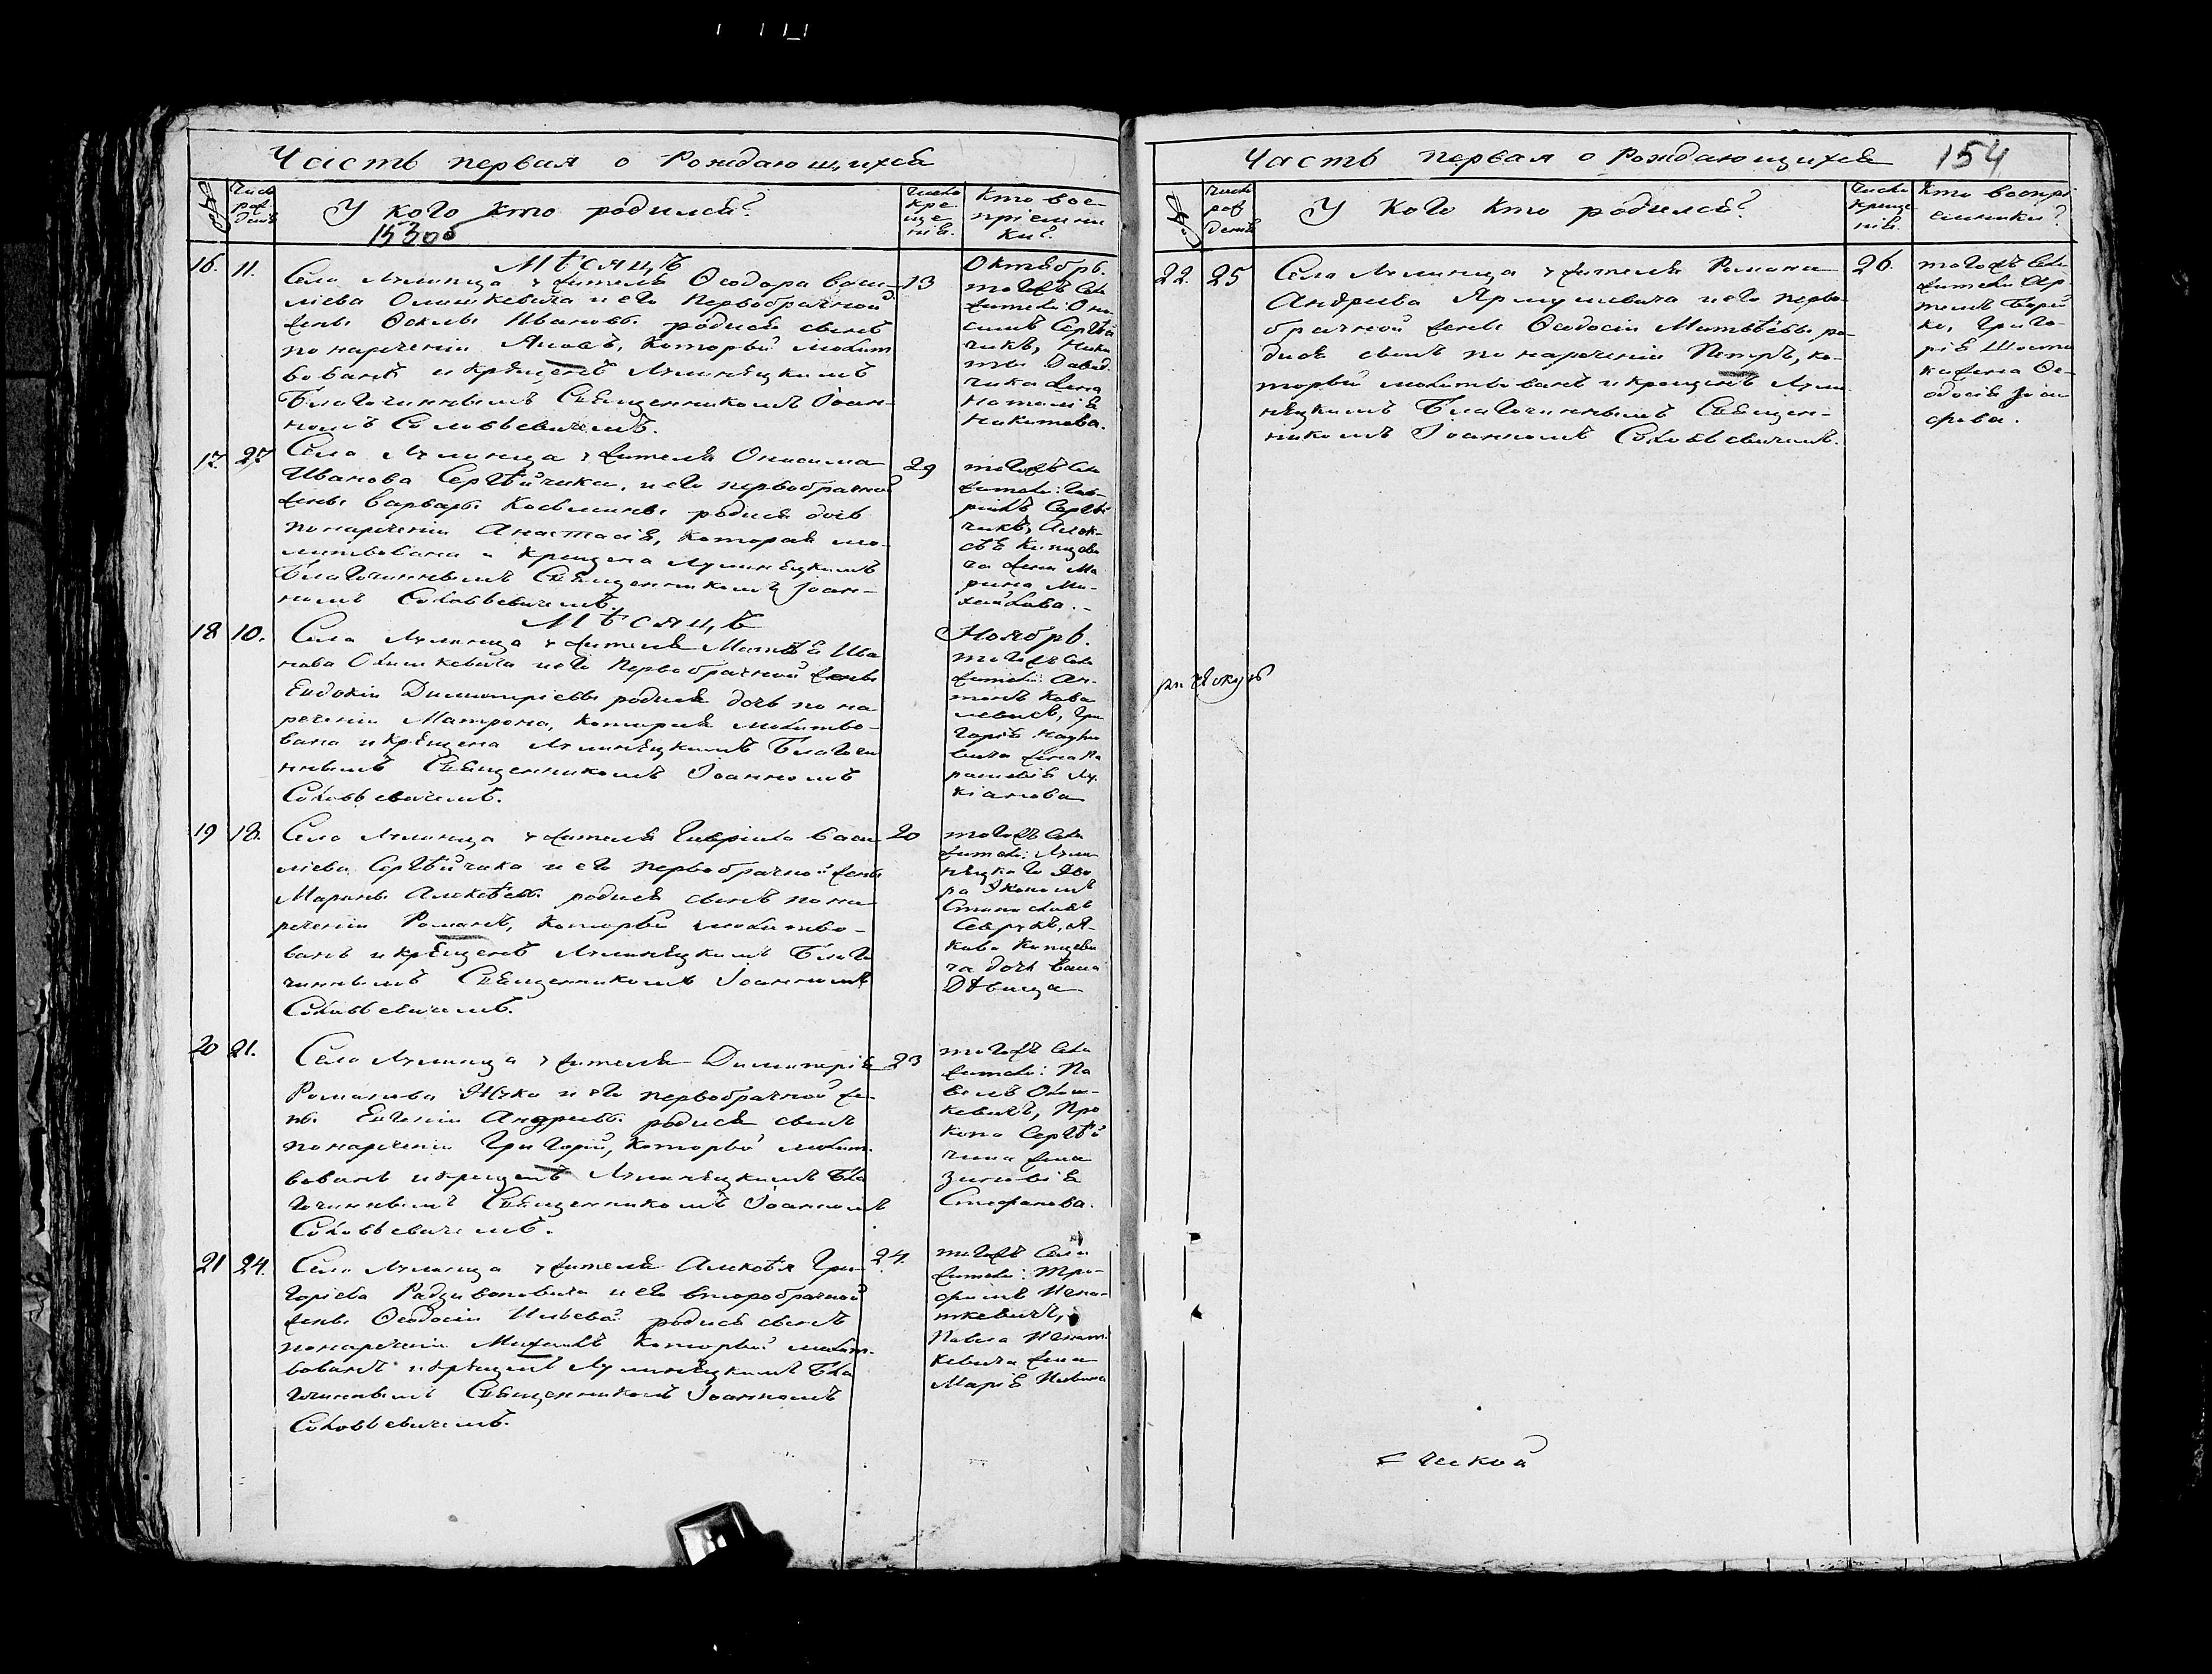 Часть первая о Рождающихся
№
Число рождень
У кого кто родился?
Число крещенія.
Кто воспріемники?
Мѣсяцъ
Октябрь.
16. 11.
Села Лунинца жителя Ѳеодора Васи-
ліева Олишкевича и его первобрачной
жены Ѳеклы Ивановы родися сынъ
по наречении Яковъ, который молит
вованъ и крещенъ Лунинѣцкимъ
Благочиннымъ Священникомъ Іоан-
номъ Соловьевичемъ.
13
тогожъ села
жители: Они-
симъ Сергѣй
чикъ, Ники
ты
чика жена
Наталія
Никитова.
17. 27
Села Лунинца жителя Онисима
Иванова Сергѣйчика, и его первобрачной
жены Варвары Косьмины родися дочь
по наречении Анастасія, которая мо-
литвована и крещена Лунинѣцкимъ
Благочиннымъ Священникомъ Іоан-
номъ Соловьевичемъ.
29
тогожъ села
жители: Гав-
ріилъ Сергѣй
чикъ, Алек-
сѣя Концеви
ча жена Ма
рина Ми-
хайлова.
Мѣсяцъ
Ноябрь.
18 10.
Села Лунинца жителя Матѳѣя Ива
нова Олишкевича и его первобрачной жены
Евдокіи Димитріевы родися дочь по на
речении Матрона, которая молитво-
вана и крещена Лунинѣцкимъ Благочи
ннымъ Священникомъ Іоанномъ
Соловьевичемъ.
тогожъ села
жители: Ан-
тонъ Кова
левичъ, Гри
горія
вича жена Па
раскевія Лу-
кіанова
19 18.
Села Лунинца жителя Гавріила Васи
ліева Сергѣйчика и его первобрачной жены
Марины Алексѣевы родися сынъ по на
речении Романъ, который молитво-
ванъ и крещенъ Лунинѣцкимъ Благо
чиннымъ Священникомъ Іоанномъ
Соловьевичемъ.
20
тогожъ села
жители: Луни
нѣцкаго Дво
ра Экономъ
Станиславъ
Я-
кова Концеви
ча дочь
Дѣвица
20 21.
Села Лунинца жителя Димитрія
Романова Жука и его первобрачной же-
ны Евгеніи Андреевы родися сынъ
по наречении Григорій, который молит-
вованъ и крещенъ Лунинѣцкимъ Бла
гочиннымъ Священникомъ Іоанномъ
Соловьевичемъ.
23
тогожъ села
жители: Па
велъ Олиш-
кевичъ, Про
копа Сергѣй
чика жена
Зиновія
Стефанова.
21 24.
Села Лунинца жителя Алексѣя Гри-
горіева Радзивоновича и его второбрачной
жены Ѳеодосіи Ильевой родися сынъ
по наречении Михаилъ который молит-
вованъ и крещенъ Лунинѣцкимъ Бла
гочиннымъ Священникомъ Іоанномъ
Соловьевичемъ.
24.
тогожъ села
жители: Тро-
фимъ Игна-
ткевичъ,
Павла Игнат-
кевича жена
Марія
Часть первая о Рождающихся 154
№
Число рождень
У кого кто родился?
Число крещенія.
Кто воспріемники?
22. 25
Села Лунинца жителя Романа
Андреева Ярмушевича и его перво-
брачной жены Ѳеодосіи Матѳѣевы ро-
дися сынъ по наречении Петръ, ко-
торый молитвованъ и крещенъ Луни-
нѣцкимъ Благочиннымъ Священ-
никомъ Іоанномъ Соловьевичемъ.
26.
тогожъ села
жители: Ар-
темъ
ко, Григо-
рія Шоста
ка жена Ѳе-
одосія